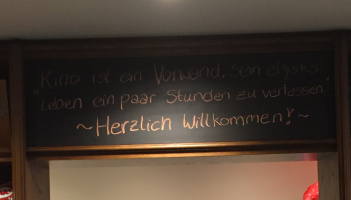 "Kino ist ein Vorwand, sein eigenes
Leben ein paar Stunden zu verlassen."
~Herzlich Willkommen!~